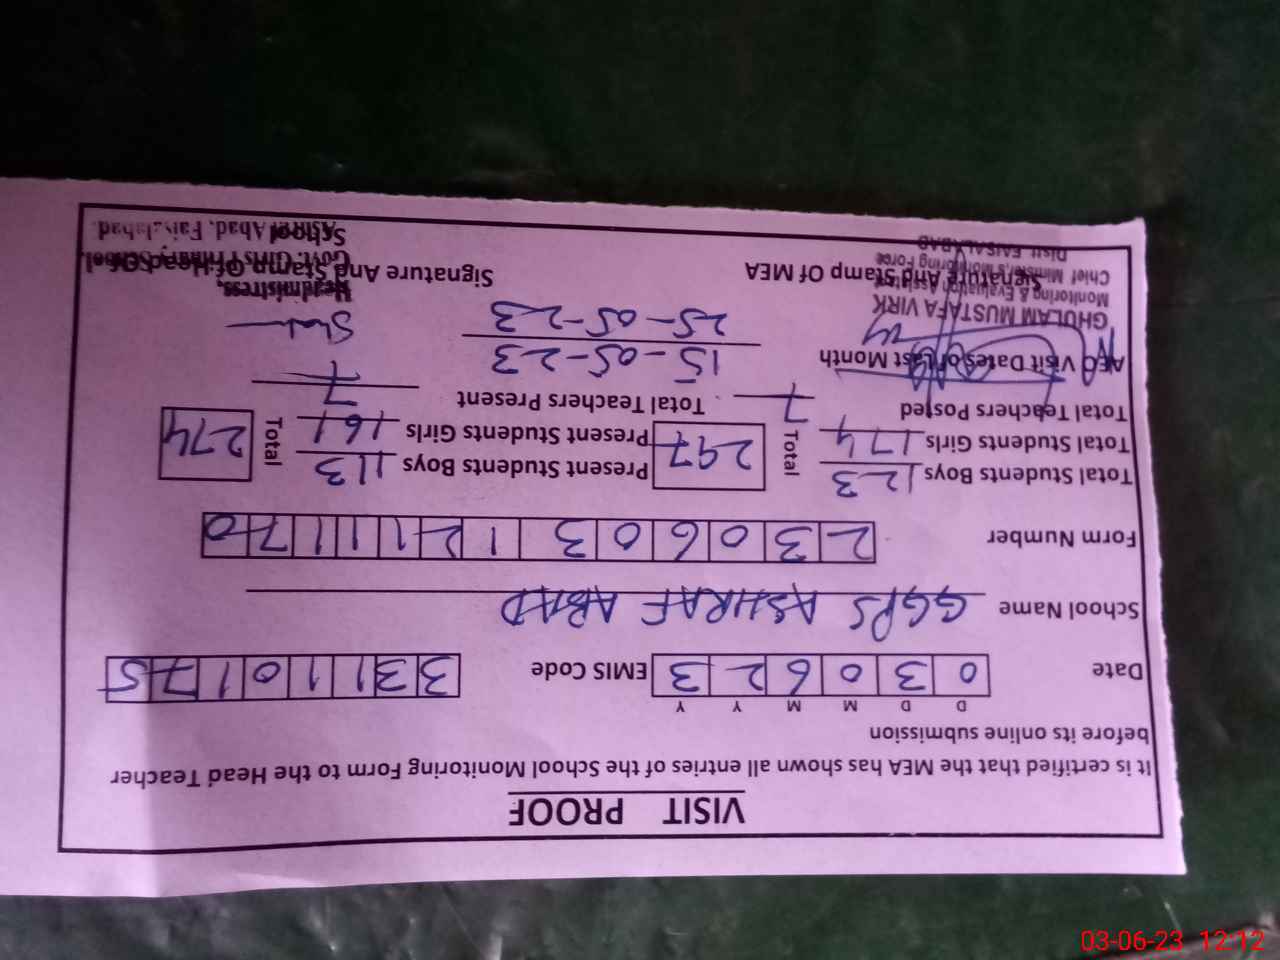 VISIT PROOF
It is certified that the MEA has shown all entries of the School Monitoring Form to the Head Teacher
before its online submission
D D M M Y Y
Date 0 3 0 6 2 3 EMIS Code 3 3 1 1 0 1 7 5
School Name GGPS ASHRAF ABAD
Form Number 2 3 0 6 0 3 1 2 1 1 1 7 0
Total Students Boys 123 Total 297 Present Students Boys 113 Total 274
Total Students Girls 174 Present Students Girls 161
Total Teachers Posted 7 Total Teachers Present 7
AEO Visit Dates of Last Month 15-05-23
25-05-23
GHULAM MUSTAFA VIRK
Monitoring & Evaluation Assistant
Chief Minister's Monitoring Force
Distt. FAISALABAD
Signature And Stamp Of MEA
Headmistress,
Govt. Girls Primary School,
Ashraf Abad, Faisalabad.
Signature And Stamp Of Head Of
School
03-06-23 12:12